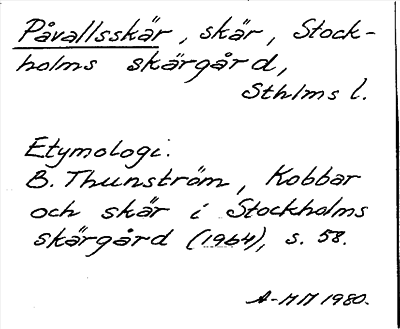 Påvallsskär, skär, Stock-
holms skärgård,
Sthlms l.
Etymologi:
B. Thunström, Kobbar
och skär i Stockholms
skärgård (1964), s. 58.
A-MM 1980.